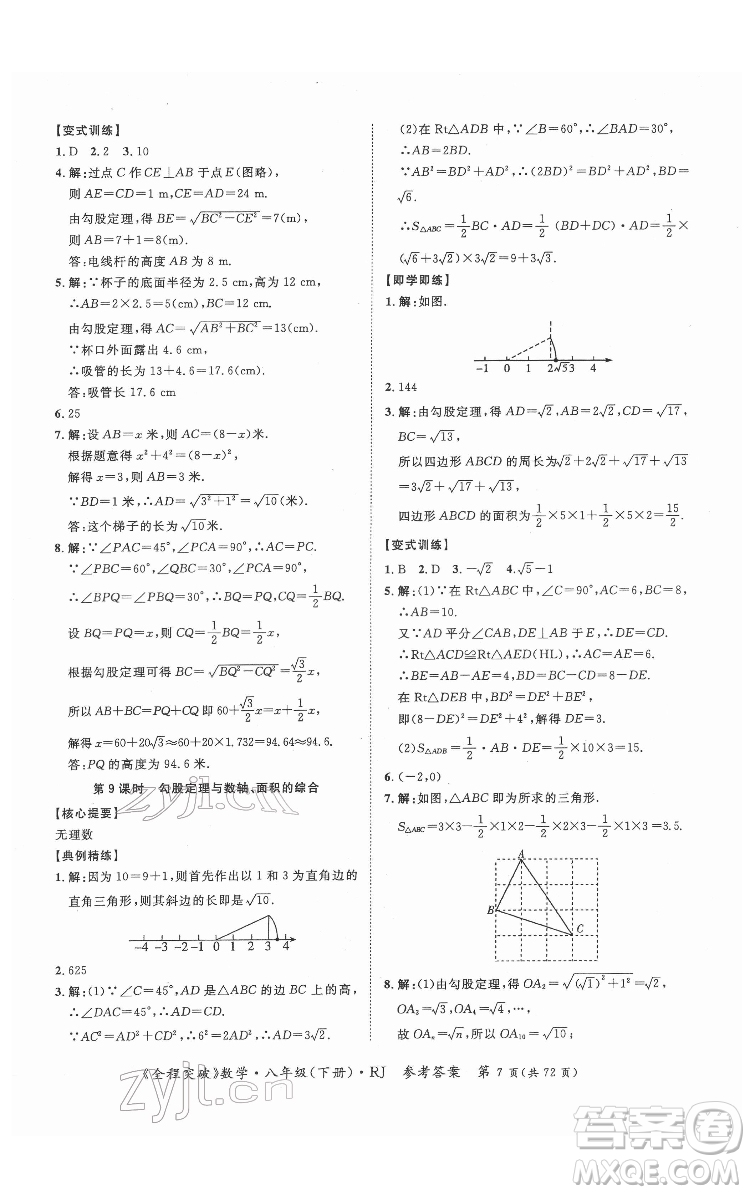 【变式训练】
1. D 2. 2 3. 10
4. 解:过点 C 作 CE⊥AB 于点 E(图略),
则 AE=CD=1 m,AC=AD=24 m.
由勾股定理,得 BE=√(BC²−CE²)=7(m),
则 AB=7+1=8(m).
答:电线杆的高度 AB 为 8 m.
5. 解:∵杯子的底面半径为 2.5 cm,高为 12 cm,
∴AB=2×2.5=5(cm),BC=12(cm).
由勾股定理,得 AC=√(AB²+BC²)=13(cm).
∵杯口外面露出 4.6 cm,
∴吸管的长为 13+4.6=17.6(cm).
答:吸管长 17.6 cm
6. 25
7. 解:设 AB=x 米,则 AC=(8−x)米,
根据题意得 x²+4²=(8−x)²,
解得 x=3,则 AB=3 米.
∵BD=1(米),∴AD=√(3²+1²)=√10(米).
答:这个梯子的长为√10米.
8. 解:∵∠PAC=45°,∠PCA=90°,∴AC=PC.
∵∠PBC=60°,∠QBC=30°,∠PCA=90°,
∴∠BPQ=30°,∴BQ=PQ,CQ=1/2 BQ.
设 BQ=PQ=x,则 CQ=1/2 BQ=1/2 x,
根据勾股定理得 BC=√(BQ²−CQ²)=√3/2 x,
所以 AB+BC=PQ+CQ 即 60+√3/2 x=x+1/2 x,
解得 x=60+20√3=60+20×1.732=94.64≈94.6.
答:PQ 的高度为 94.6 米.
第 9 课时 勾股定理与数轴、面积的综合
【核心提要】
无理数
【典例精练】
1. 解:因为 10=9+1,则首先作出以 1 和 3 为直角边的
直角三角形,则其斜边的长即是√10.
-4 -3 -2 -1 0 1 2 3 4
2. 625
3. 解:(1)∵∠C=45°,AD 是△ABC 的边 BC 上的高,
∴∠DAC=45°,∴AD=CD.
∵AC²=AD²+CD²,∴6²=2AD²,∴AD=3√2.
(2)在 Rt△ADB 中,∵∠B=60°,∴∠BAD=30°,
∴AB=2BD.
∵AB²=BD²+AD²,∴(2BD)²=BD²+AD²,BD=
√6.
∴S△ABC=1/2 BC·AD=1/2 (BD+DC)·AD=1/2 ×
(√6+3√2)×3√2=9+3√3.
【即学即练】
1. 解:如图.
-1 0 1 2√5 3 4
2. 144
3. 解:由勾股定理,得 AD=√2,AB=2√2,CD=√17,
BC=√13,
所以四边形 ABCD 的周长为√2+2√2+√17+√13
=3√2+√17+√13.
四边形 ABCD 的面积为1/2×5×1+1/2×5×2=15/2.
【变式训练】
1. B 2. D 3. −√2 4. √5−1
5. 解:(1)∵在 Rt△ABC 中,∠C=90°,AC=6,BC=8,
∴AB=10.
又∵AD 平分∠CAB,DE⊥AB,∴CD=DE.
∴Rt△ACD≌Rt△AED(HL),∴AC=AE=6.
∴BE=AB−AE=4,BD=BC−CD=8−DE.
在 Rt△DEB 中,BD²=DE²+BE²,
即(8−DE)²=DE²+4²,解得 DE=3.
(2)S△ADB=1/2 AB·DE=1/2×10×3=15.
6. (−2,0)
7. 解:如图,△ABC 即为所求的三角形.
A
B
C
8. 解:(1)由勾股定理,得 OA₂=√((√1)²+1²)=√2,
OA₃=√3,OA₄=√4,…,OA₁₀=√10.
故 OAₙ=√n,所以 OA₁₀=√10;
《全程突破》数学·八年级(下册)·RJ 参考答案 第 7 页(共 72 页)
答案圈
MXQE.COM